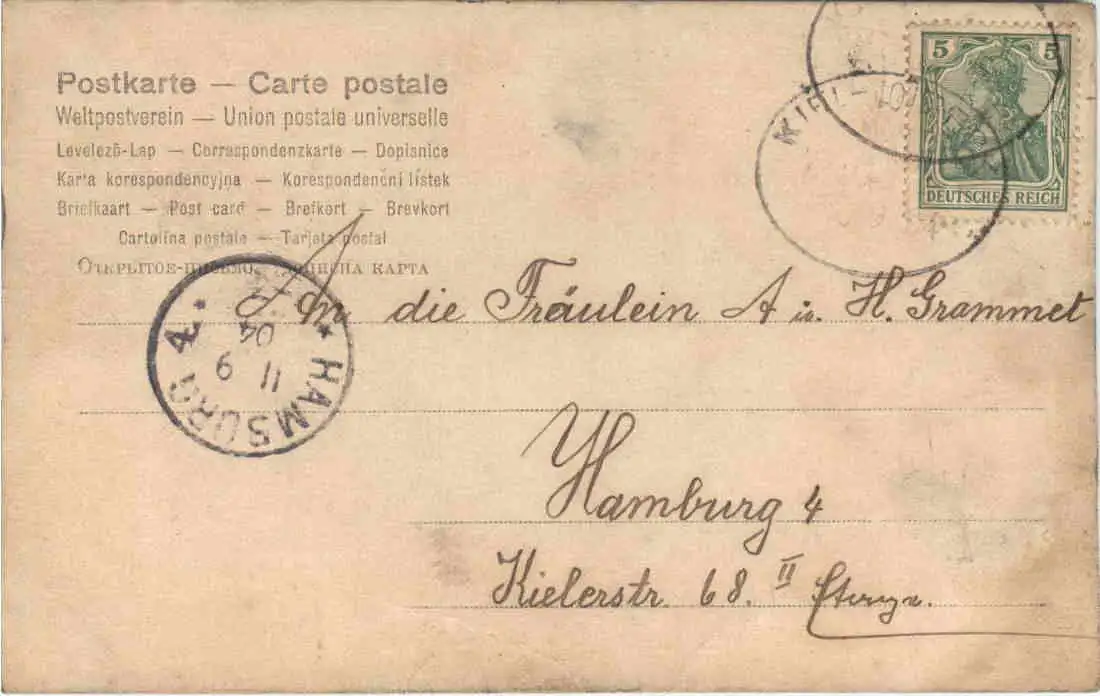 Postkarte — Carte postale
Weltpostverein — Union postale universelle
Levelező-Lap — Correspondenzkarte — Dopisnice
Karta korespondencyjna — Korespondenční lístek
Briefkaart — Post card — Brefkort — Brevkort
Cartolina postale — Tarjeta postal
Открытое-письмо. — Дописна карта
5 5
DEUTSCHES REICH
KIEL –
HAMBURG 4.
11 9
04
An die Fräulein A u. H. Grammet
Hamburg 4
Kielerstr. 68. II